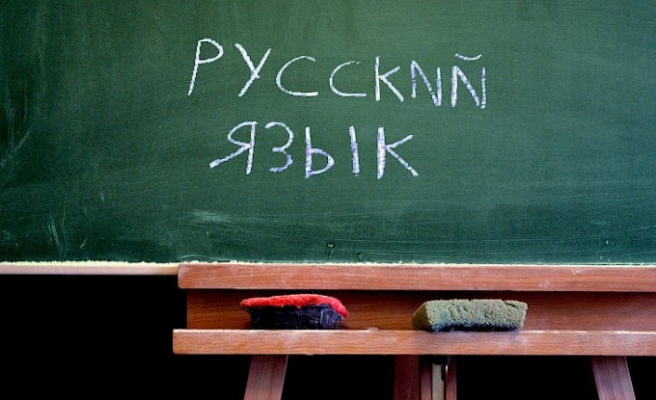 РУССКИЙ
ЯЗЫК